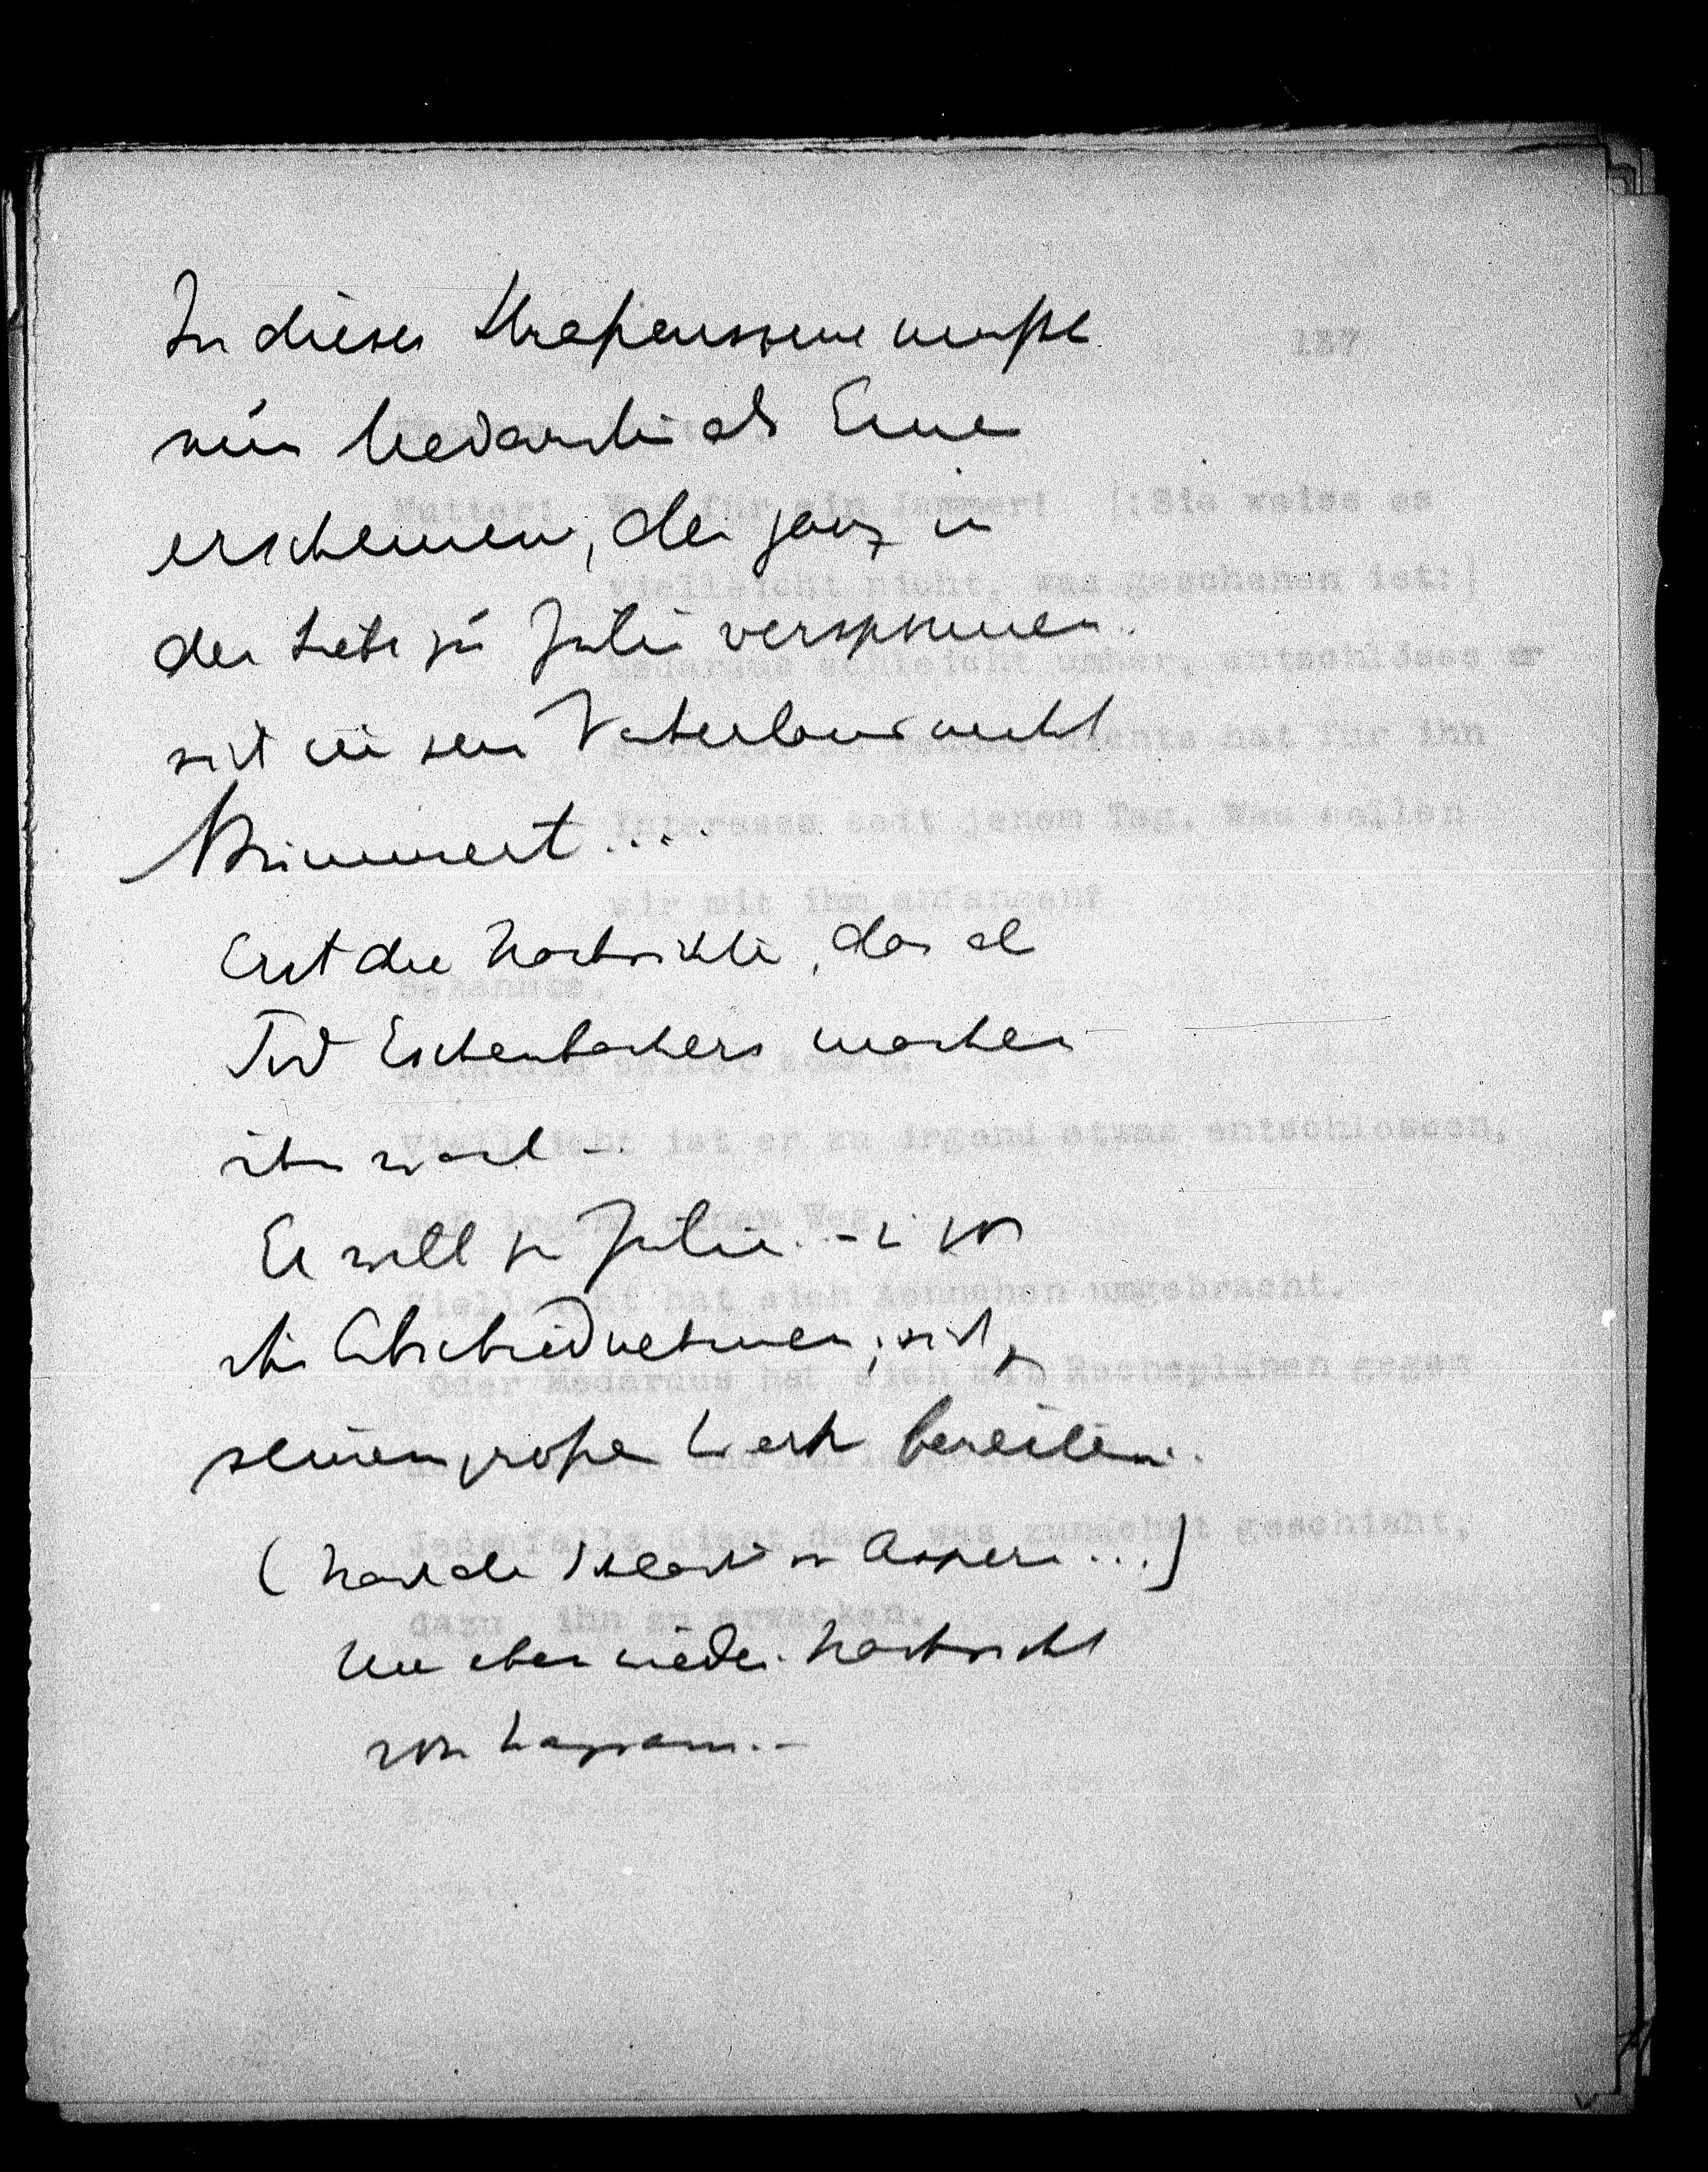 In dieser Straßenszene mußte
nun Medardus als Einer
erscheinen, der ganz in
der Liebe zu Julie versponnen
sich um sein Vaterland nicht
kümmert ...
Erst die Nachrichten, das
Tod Eschenbachers machen
ihn wach –.
Er will zu Julie. – von
ihr Abschied nehmen; sich zu
seinem großen Werk bereiten..
(Nach der Schlacht von Aspern ...)
Um eben wieder Nachricht
von Wagram. –
137
Mutter: Was für ein Jammer! |:Sie weiss es
vielleicht nicht, was geschehen ist:|
Medardus schleicht umher, entschlösse er
nichts hat für ihn
Interesse seit jenem Tag. Was sollen
wir mit ihm anfangen?
Bekannte.
Medardus selbst kommt.
Vielleicht ist er zu irgend etwas entschlossen,
auf irgend einem Weg.
Vielleicht hat sich Aennchen umgebracht.
Oder Medardus hat sich mit Racheplänen gegen
Jedenfalls dient das, was zunächst geschieht,
dazu ihn zu erwecken.